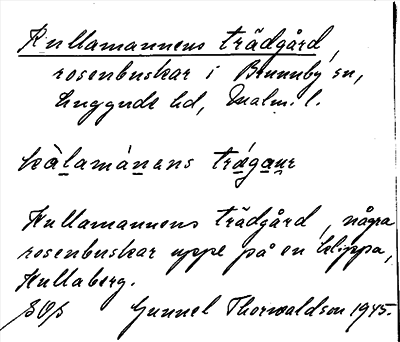 Kullamannens trädgård,
rosenbuskar i Brunnby sn,
Luggude hd, Malm. l.
kàlamánans trágaɳ
Kullamannens trädgård, några
rosenbuskar uppe på en klippa,
Kullaberg.
Gunnel Thorwaldson 1945.